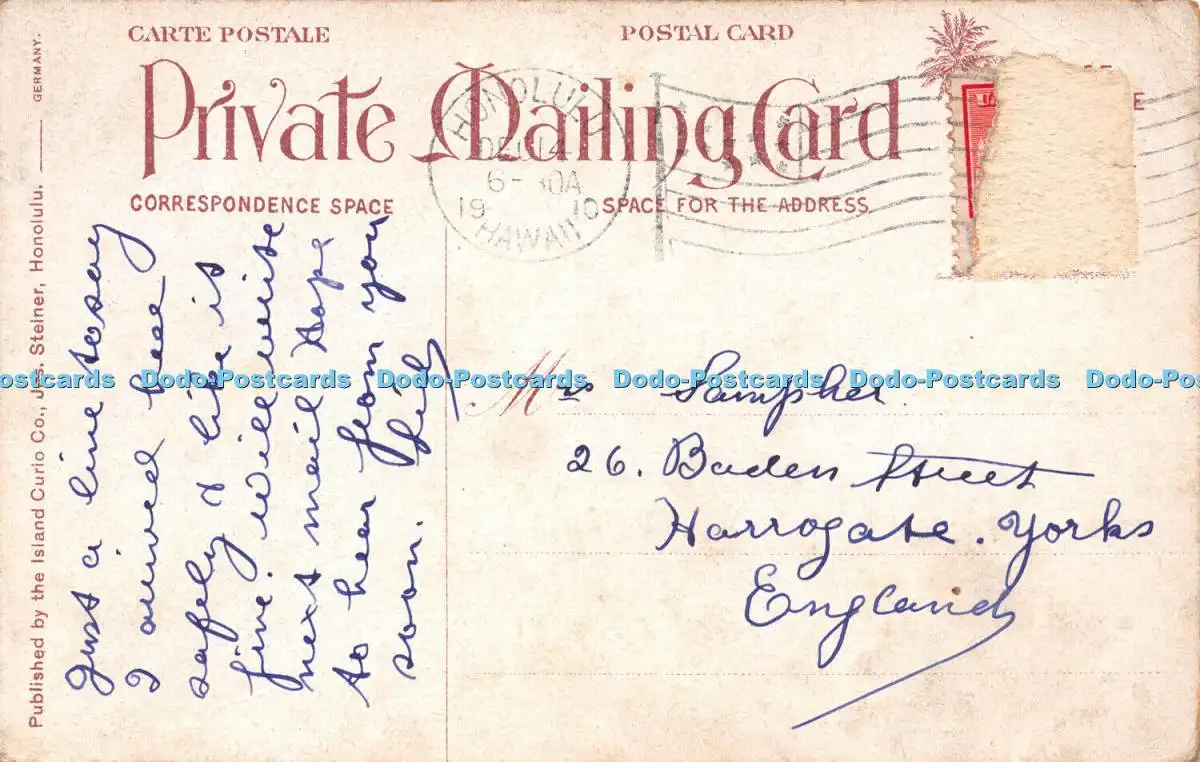 CARTE POSTALE
POSTAL CARD
Private Mailing Card
CORRESPONDENCE SPACE
SPACE FOR THE ADDRESS
HONOLULU
6-30A
19 10
HAWAII
Published by the Island Curio Co., Jas. Steiner, Honolulu. GERMANY.
Just a line to say
I arrived here
safely & like is
fine. will write
next mail Hope
to hear from you
soon.
Mrs Sampher
26. Baden Street
Harrogate. Yorks
England
Dodo-Postcards Dodo-Postcards Dodo-Postcards Dodo-Postcards Dodo-Postcards